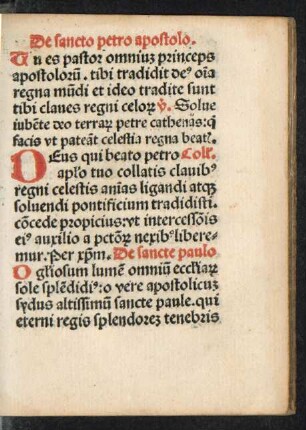 De sancto petro apostolo.
Tu es pastor omniuꝫ princeps
apostoloꝝ. tibi tradidit deꝰ oīa
regna mūdi et ideo tradite sunt
tibi claues regni celoꝝ ℣. Solue
iubēte deo terraꝝ petre cathenas: q̄
facis vt pateāt celestia regna beatꝭ.
DEus qui beato petro Coll'.
apl'o tuo collatis clauibꝰ
regni celestis aīas ligandi atqꝫ
soluendi pontificium tradidisti.
cōcede propicius: vt intercessōis
eiꝰ auxilio a pctōꝝ nexibꝰ libere-
mur. Per xp̄m. De sancte paulo
O gl'iosum lumē omniū eccl'iaꝝ
sole splēdidiꝰ: o vere apostolicuꝫ
sydus altissimū sancte paule. qui
eterni regis splendoreꝫ tenebris